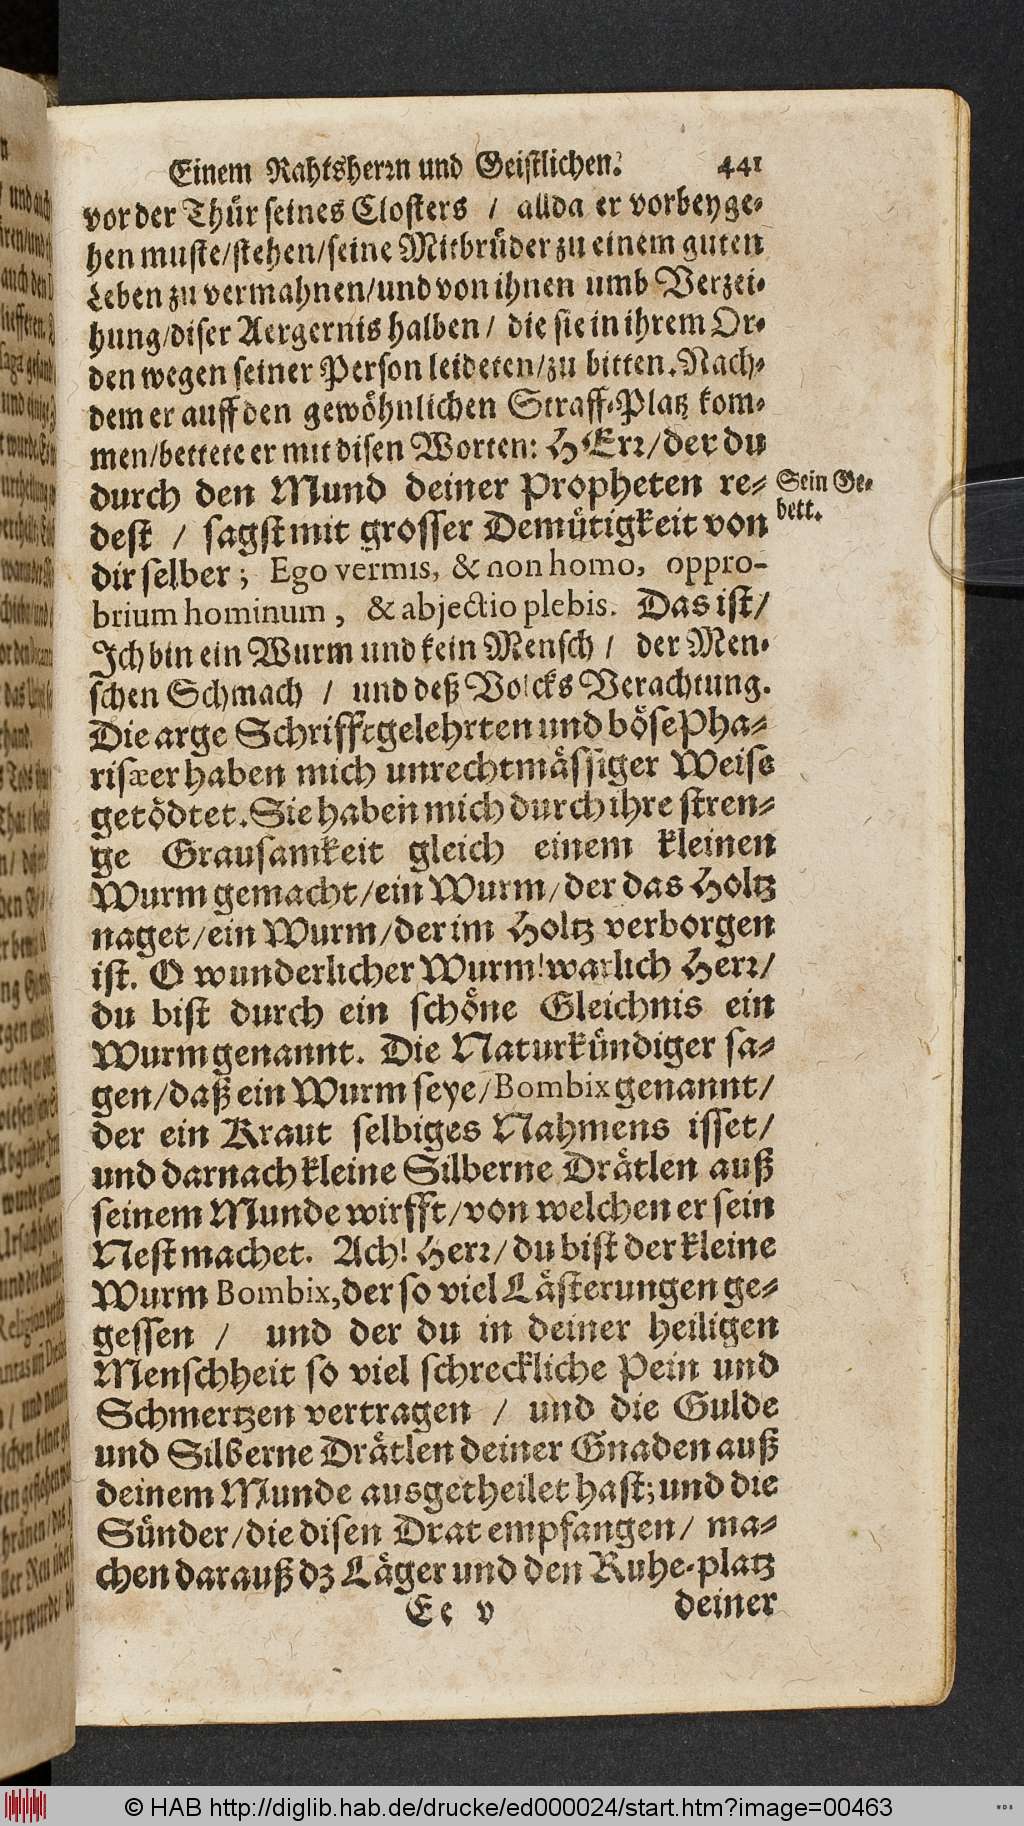 Einem Rahtsherrn und Geistlichen. 441
vor der Thür seines Closters / allda er vorbeyge-
hen muste/stehen/seine Mitbrüder zu einem guten
Leben zu vermahnen/und von ihnen umb Verzei-
hung/diser Aergernis halben / die sie in ihrem Or-
den wegen seiner Person leideten/zu bitten. Nach-
dem er auff den gewöhnlichen Straff-Platz kom-
men/bettete er mit disen Worten: HErr/der du
durch den Mund deiner Propheten re-
Sein Ge-
bett.
dest / sagst mit grosser Demütigkeit von
dir selber; Ego vermis, & non homo, oppro-
brium hominum, & abjectio plebis. Das ist/
Ich bin ein Wurm und kein Mensch / der Men-
schen Schmach / und deß Volcks Verachtung.
Die arge Schrifftgelehrten und böse Pha-
risæer haben mich unrechtmässiger Weise
getödtet. Sie haben mich durch ihre stren-
ge Grausamkeit gleich einem kleinen
Wurm gemacht/ein Wurm/der das Holtz
naget/ein Wurm/der im Holtz verborgen
ist. O wunderlicher Wurm! warlich Herr/
du bist durch ein schöne Gleichnis ein
Wurm genannt. Die Naturkündiger sa-
gen/daß ein Wurm seye/Bombix genannt/
der ein Kraut selbiges Nahmens isset/
und darnach kleine Silberne Drätlen auß
seinem Munde wirfft/von welchen er sein
Nest machet. Ach! Herr/du bist der kleine
Wurm Bombix,der so viel Lästerungen ge-
gessen / und der du in deiner heiligen
Menschheit so viel schreckliche Pein und
Schmertzen vertragen / und die Gulde
und Silberne Drätlen deiner Gnaden auß
deinem Munde ausgetheilet hast; und die
Sünder/die disen Drat empfangen/ ma-
chen darauß dz Läger und den Ruhe-platz
Ee v deiner
© HAB http://diglib.hab.de/drucke/ed000024/start.htm?image=00463